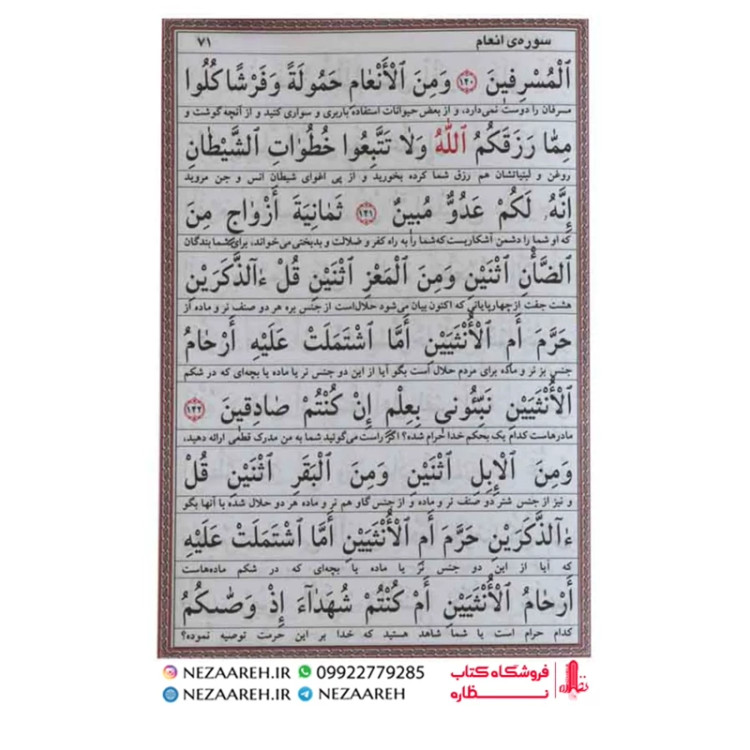 سوره‌ی انعام ۷۱
الْمُسْرِفِينَ ۝۱۴۰ وَمِنَ الْأَنْعَامِ حَمُولَةً وَفَرْشًا كُلُوا
مسرفان را دوست نمی‌دارد، و از بعض حیوانات استفاده باربری و سواری کنید و از آنچه گوشت و
مِمّٰا رَزَقَكُمُ اللّٰهُ وَلٰا تَتَّبِعُوا خُطُوٰاتِ الشَّيْطٰانِ
روغن و لبنیاتشان هم رزق شما کرده بخورید و از پی اغوای شیطان انس و جن مروید
إِنَّهُ لَكُمْ عَدُوٌّ مُبِينٌ ۝۱۴۱ ثَمٰانِيَةَ أَزْوٰاجٍ مِنَ
که او شما را دشمن آشکاریست که شما را به راه کفر و ضلالت و بدبختی می‌خواند، برای شما بندگان
الضَّأْنِ اثْنَيْنِ وَمِنَ الْمَعْزِ اثْنَيْنِ قُلْ ءٰآلذَّكَرَيْنِ
هشت جفت از چهارپایانی که اکنون بیان می‌شود حلال است از جنس بره هر دو صنف نر و ماده از
حَرَّمَ أَمِ الْأُنْثَيَيْنِ أَمَّا اشْتَمَلَتْ عَلَيْهِ أَرْحٰامُ
جنس بز نر و ماده برای مردم حلال است بگو آیا از این دو جنس نر یا ماده یا بچه‌ای که در شکم
الْأُنْثَيَيْنِ نَبِّئُونِي بِعِلْمٍ إِنْ كُنْتُمْ صٰادِقِينَ ۝۱۴۲
مادرهاست کدام یک بحکم خدا حرام شده؟ اگر راست می‌گوئید شما به من مدرک قطعی ارائه دهید،
وَمِنَ الْإِبِلِ اثْنَيْنِ وَمِنَ الْبَقَرِ اثْنَيْنِ قُلْ
و نیز از جنس شتر دو صنف نر و ماده و از جنس گاو هم نر و ماده هر دو حلال شده با آنها بگو
ءٰآلذَّكَرَيْنِ حَرَّمَ أَمِ الْأُنْثَيَيْنِ أَمَّا اشْتَمَلَتْ عَلَيْهِ
که آیا از این دو جنس نر یا ماده یا بچه‌ای که در شکم ماده‌هاست
أَرْحٰامُ الْأُنْثَيَيْنِ أَمْ كُنْتُمْ شُهَدٰآءَ إِذْ وَصّٰىكُمُ
کدام حرام است یا شما شاهد هستید که خدا بر این حرمت توصیه نموده؟
NEZAAREH.IR 09922779285 فروشگاه کتاب
NEZAAREH.IR NEZAAREH نظاره